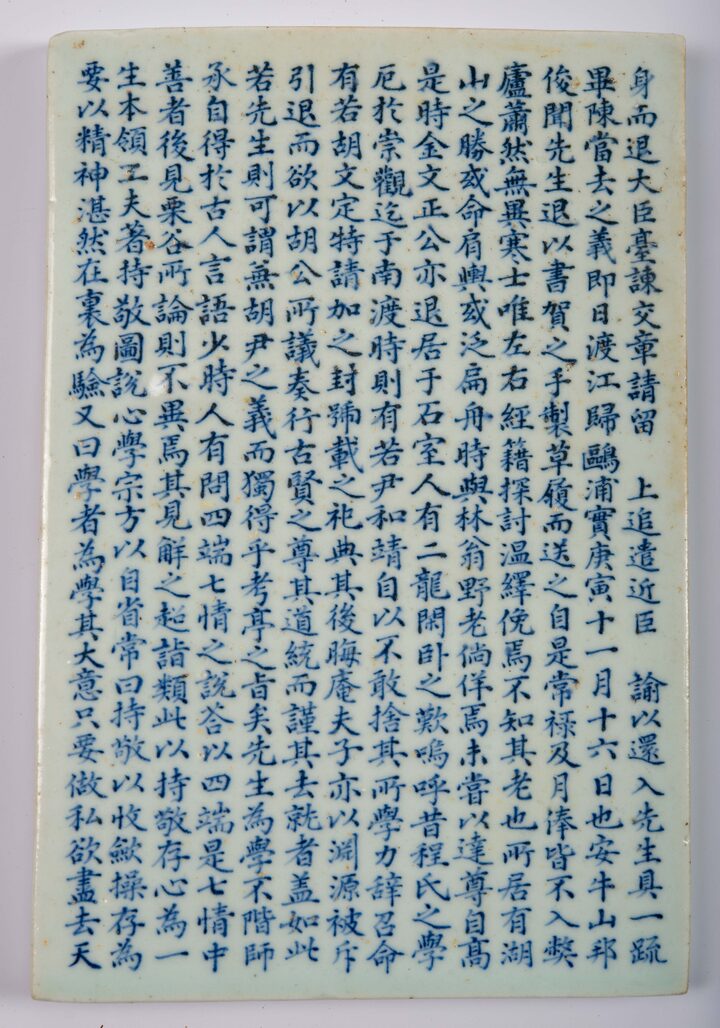 身而退大臣臺諫交章請留 上追遣近臣 諭以還入先生具一疏
畢陳當去之義即日渡江歸鷗浦實庚寅十一月十六日也安牛山邦
俊聞先生退以書賀之手製草履而送之自是常祿及月俸皆不入弊
廬蕭然無異寒士唯左右經籍探討温繹俛焉不知其老也所居有湖
山之勝或命肩輿或泛扁舟時與林翁野老倘佯焉未嘗以達尊自高
是時金文正公亦退居于石室人有二龍閑卧之歎嗚呼昔程氏之學
厄於崇觀迄于南渡時則有若尹和靖自以不敢捨其所學力辞召命
有若胡文定特請加之封號載之祀典其後晦庵夫子亦以淵源被斥
引退而欲以胡公所議奏行古賢之尊其道統而謹其去就者盖如此
若先生則可謂無胡尹之義而獨得乎考亭之旨矣先生為學不階師
承自得於古人言語少時人有問四端七情之說答以四端是七情中
善者後見栗谷所論則不異焉其見解之超詣類此以持敬存心為一
生本領工夫著持敬圖說心學宗方以自省常曰持敬以收斂操存為
要以精神湛然在裏為驗又曰學者為學其大意只要做私欲盡去天